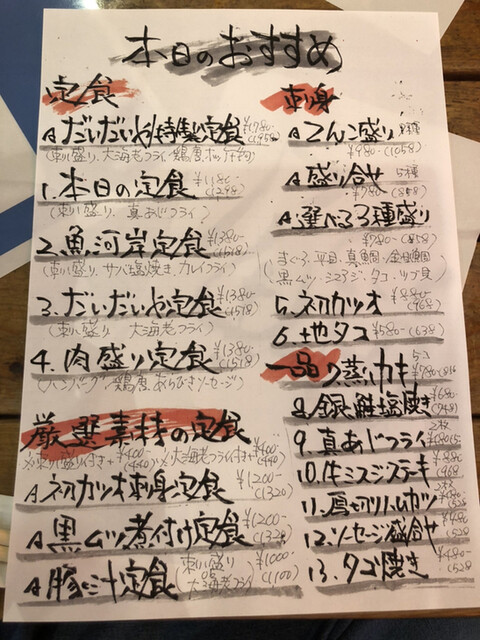 本日のおすすめ
定食
A だいだいや特製定食 ¥1780-
(刺し盛り、大海老フライ、鶏唐
1. 本日の定食 ¥1180-
(刺し盛り、真あじフライ)
2. 魚河岸定食 ¥1380- (1518)
(刺し盛り、サバ塩焼き、カレイフライ)
3. だいだいや定食 ¥1380- (1518)
(刺し盛り 大海老フライ)
4. 肉盛り定食 ¥1380- (1518)
(ハンバーグ、鶏唐、あらびきソーセージ)
厳選素材の定食
※刺し盛り付き+¥400- (440) ※大海老フライ付き+¥400- (440)
A 初カツオ刺身定食 ¥1200- (1320)
A 黒ムツ煮付け定食 ¥1200- (1320)
A 豚汁定食 (刺し盛り 大海老フライ) ¥1000- (1100)
刺身
A てんこ盛り
¥980- (1058)
A 盛り合せ 5種
¥780- (858)
A 選べる3種盛り
¥780- (858)
(まぐろ、平目、真鯛、金目鯛
黒ムツ・シマアジ・タコ・ツブ貝)
5. 初カツオ ¥880- (968)
6. 地タコ ¥580- (638)
一品 7. 蒸しカキ
8. 銀鮭塩焼き
9. 真あじフライ 2枚
10. 牛ミスジステーキ
11. 厚切りハムカツ
12. ソーセージ盛合せ ¥480- (528
13. タコ焼き ¥480- (528